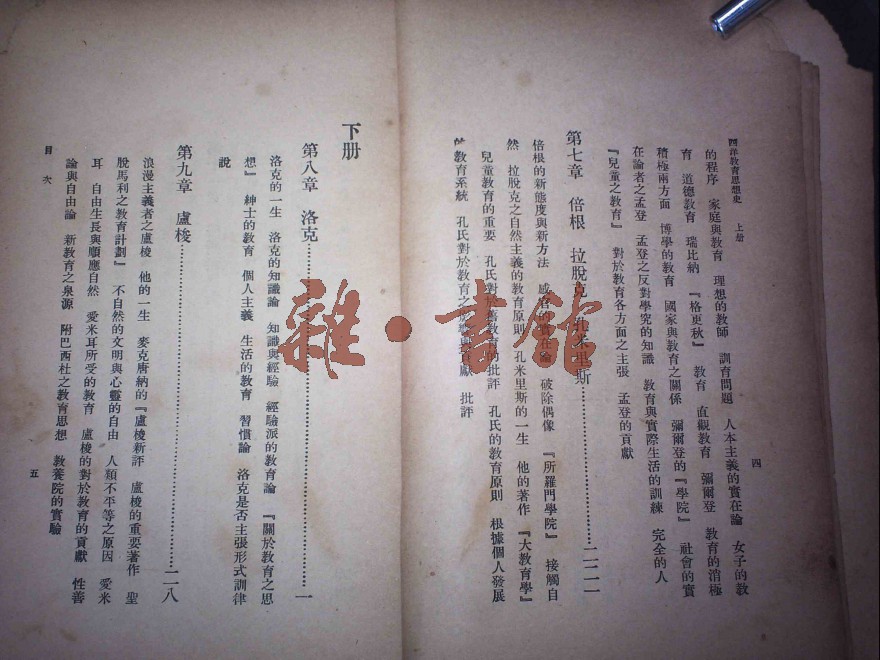 西洋教育思想史 上册
四
的程序 家庭與教育 理想的教師 訓育問題 人本主義的實在論 女子的教
育 道德教育 瑞比納 『格更秋』 教育 直觀教育 彌爾登 教育的消極
積極兩方面 博學的教育 國家與教育之關係 彌爾登的『學院』 社會的實
在論者之孟登 孟登之反對學究的知識 教育與實際生活的訓練 完全的人
『兒童之教育』 對於教育各方面之主張 孟登的貢獻
第七章 倍根 拉脫克 孔米里斯……二二一
倍根的新態度與新方法 感官的實在論 破除偶像 『所羅門學院』 接觸自
然 拉脫克之自然主義的教育原則 孔米里斯的一生 他的著作 『大教育學』
兒童教育的重要 孔氏對於舊教育的批評 孔氏的教育原則 根據個人發展
的教育系統 孔氏對於教育之影響與貢獻 批評
下册
第八章 洛克……一
洛克的一生 洛克的知識論 知識與經驗 經驗派的教育論 『關於教育之思
想』 紳士的教育 個人主義 生活的教育 習慣論 洛克是否主張形式訓律
說
第九章 盧梭……二八
浪漫主義者之盧梭 他的一生 麥克唐納的『盧梭新評 盧梭的重要著作 聖
脫馬利之教育計劃』 不自然的文明與心靈的自由 人類不平等之原因 愛米
耳 自由生長與順應自然 愛米耳所受的教育 盧梭的對於教育的貢獻 性善
論與自由論 新教育之泉源 附巴西杜之教育思想 教養院的實驗
目次
五
雜·書館